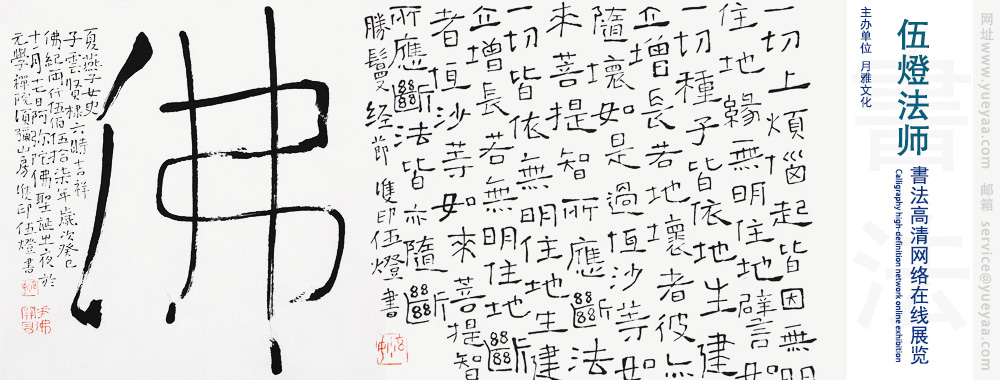 佛
夏燕子女史
子雲賢棣六時吉祥
佛紀兩仟伍佰伍拾柒年歲次癸巳
十一月十七日阿弥陀佛聖誕之夜於
禪院須彌山房 隻印伍燈書
一切上煩惱起皆因無明
住地緣無明住地譬如
一切種子皆依地生建
立增長若地壞者彼亦
隨壞如是過恆沙等如
來菩提智所應斷法
一切皆依無明住地生建
立增長若無明住地斷
者恆沙等如來菩提智
所應斷法皆亦隨斷
勝鬘经節 隻印伍燈書
主办单位 月雅文化
伍燈法师
書法高清网络在线展览
Calligraphy high-definition network online exhibition
書法
网址www.yueyaa.com 邮箱 service@yueyaa.com